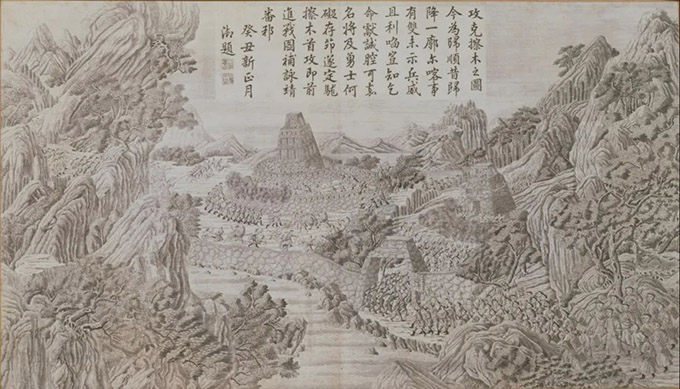 攻克擦木之圖
今為歸順昔歸
降一廓爾喀事
有雙未示兵威
且利啗豈知乞
命獻誠腔可
名將及勇士何
礙存遂定駹
擦木首攻即前
進戰圖補詠靖
番邦
癸丑新正月
御題